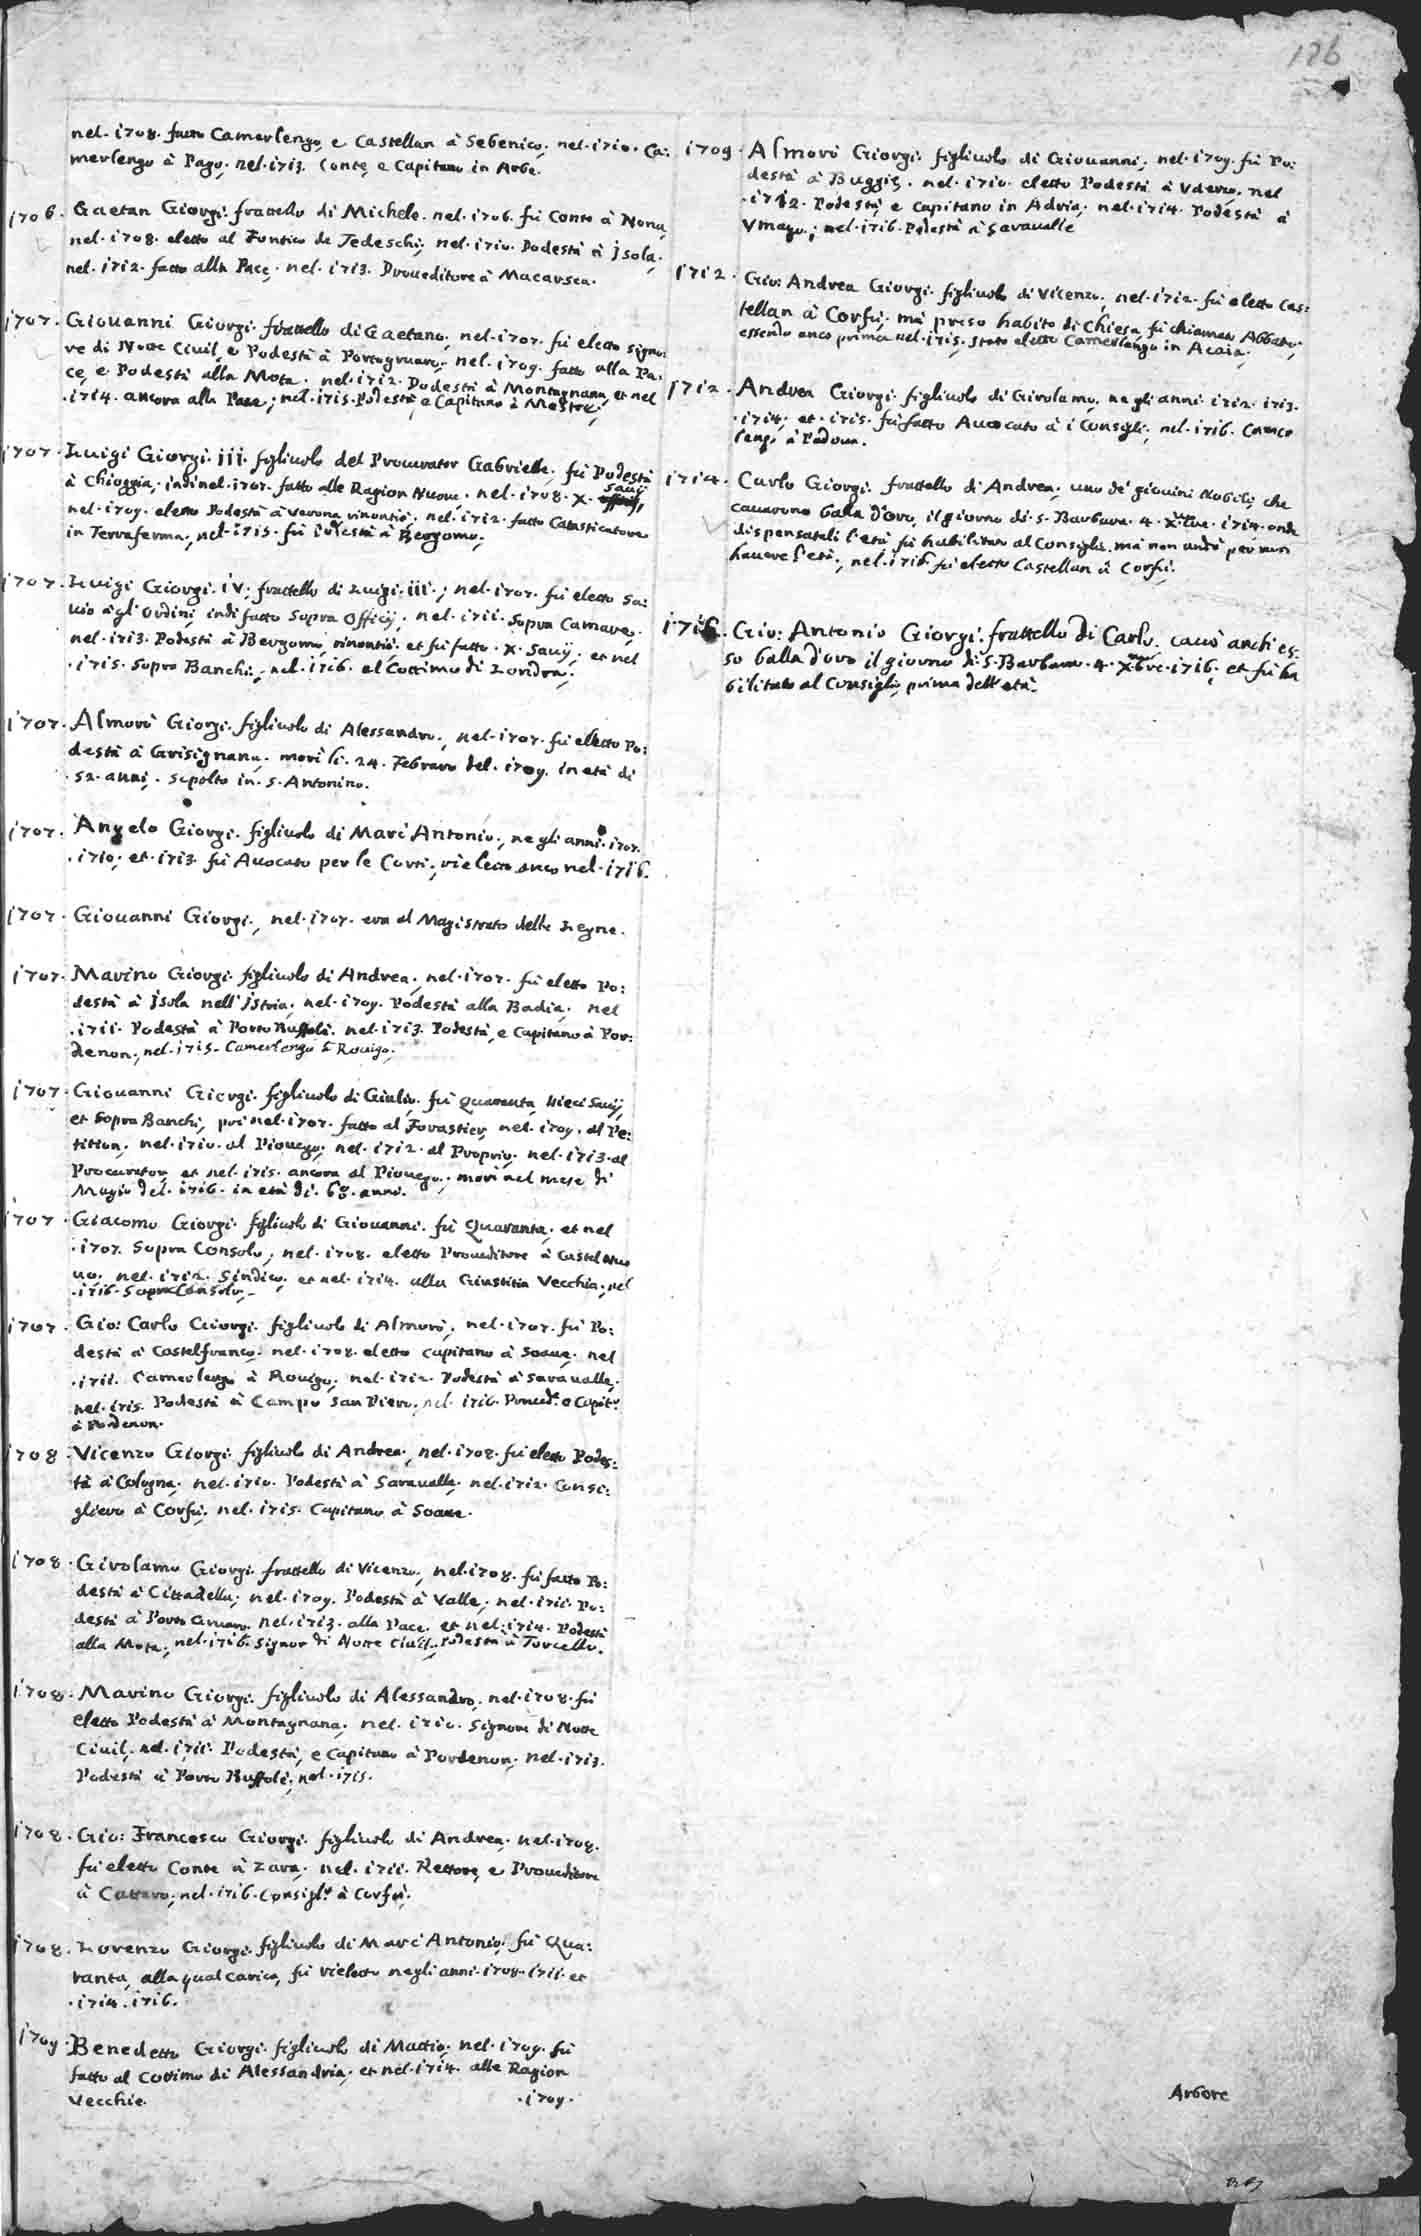 126
nel. 1708. fatto Camerlengo, e Castellan à Sebenico, nel. 1710. Ca:
merlengo à Pago, nel. 1713. Conte, e Capitano in Arbe.
1706. Gaetan Giorgi. frattello di Michele. nel. 1706. fù Conte à Nona,
nel. 1708. eletto al Fontico de Tedeschi, nel. 1710. Podestà à Isola,
nel. 1712. fatto alla Pace, nel. 1713. Proueditore à Macarsca.
1707. Giouanni Giorgi. frattello di Gaetano, nel. 1707. fù eletto Signo:
re di Notte Ciuil, e Podestà à Portogruaro, nel. 1709. fatto alla Pa:
ce, e Podestà alla Mota. nel. 1712. Podestà à Montagnana, et nel
.1714. ancora alla Pace; nel. 1715. Podestà, e Capitano à Mestre;
1707. Luigi Giorgi. iii. figliuolo del Procurator Gabrielle, fù Podestà
à Chioggia, indi nel. 1707. fatto alle Ragion Nuoue, nel. 1708. X. Sauij
nel. 1709. eletto Podestà à Verona rinontiò, nel. 1712. fatto Catasticatore
in Terraferma, nel. 1715. fù Podestà à Bergomo;
1707. Luigi Giorgi. iV; frattello di Luigi. iii.; nel. 1707. fù eletto Sa:
uio à gl' Ordini, indi fatto Sopra Officij, nel. 1711. Sopra Camare,
nel. 1713. Podestà à Bergomo, rinontiò, et fù fatto. X. Sauij, et nel
.1715. Sopra Banchi, nel. 1716. al Cottimo di Londra;
1707. Almorò Giorgi. figliuolo di Alessandro, nel. 1707. fù eletto Po:
destà à Grisignana, morì li. 24. Febraro del. 1709. in età di
.52. anni, sepolto in. S. Antonino.
1707. Angelo Giorgi. figliuolo di Marc' Antonio, negli anni. 1707.
.1710; et. 1713. fù Auocato per le Corti, rieletto anco nel. 1716.
1707. Giouanni Giorgi, nel. 1707. era al Magistrato delle Legne.
1707. Marino Giorgi. figliuolo di Andrea, nel. 1707. fù eletto Po:
destà à Isola nell' Istria, nel. 1709. Podestà alla Badia, nel
.1711. Podestà à Porto Buffolè. nel. 1713. Podestà, e Capitano à Por:
denon, nel. 1715. Camerlengo à Rouigo.
1707. Giouanni Giorgi. figliuolo di Giulio, fù Quaranta, Dieci Sauij,
et Sopra Banchi, poi nel. 1707. fatto al Forastier, nel. 1709. al Pe:
tition, nel. 1710. al Piouego, nel. 1712. al Proprio, nel. 1713. al
Procurator, et nel. 1715. ancora al Piouego, morì nel mese di
Magio del. 1716. in età di. 68. anni.
1707. Giacomo Giorgi. figliuolo di Giouanni. fù Quaranta, et nel
.1707. Sopra Consolo, nel. 1708. eletto Proueditore à Castel Nuo
uo, nel. 1712. Sindico, et nel. 1714. alla Giustitia Vecchia, nel
.1716. Sopra Consolo,
1707. Gio: Carlo Giorgi. figliuolo di Almorò, nel. 1707. fù Po:
destà à Castelfranco, nel. 1708. eletto Capitano à Soaue, nel
.1711. Camerlengo à Rouigo, nel. 1712. Podestà à Saraualle,
nel. 1715. Podestà à Campo San Piero, nel. 1716. Proued.r e Capit.o
à Pordenon.
1708. Vicenzo Giorgi. figliuolo di Andrea, nel. 1708. fù eletto Podes:
tà à Cologna, nel. 1710. Podestà à Saraualle, nel. 1712. Consi:
gliero à Corfù, nel. 1715. Capitano à Soaue.
1708. Girolamo Giorgi. frattello di Vicenzo, nel. 1708. fù fatto Po:
destà à Cittadella, nel. 1709. Podestà à Valle, nel. 1711. Po:
destà à Porto Gruaro, nel. 1713. alla Pace, et nel. 1714. Podestà
alla Mota, nel. 1716. Signor di Notte Ciuil, Podestà à Torcello.
1708. Marino Giorgi. figliuolo di Alessandro, nel. 1708. fù
eletto Podestà à Montagnana, nel. 1710. Signore di Notte
Ciuil, nel. 1711. Podestà, e Capitano à Pordenon, nel. 1713.
Podestà à Porto Buffolè, nel. 1715.
1708. Gio: Francesco Giorgi. figliuolo di Andrea, nel. 1708.
fù eletto Conte à Zara, nel. 1711. Rettore, e Proueditore
à Cattaro, nel. 1716. Consigl.r à Corfù;
1708. Lorenzo Giorgi. figliuolo di Marc' Antonio, fù Qua:
ranta, alla qual carica, fù rieletto negli anni. 1708. 1711. et
.1714. 1716.
1709. Benedetto Giorgi. figliuolo di Mattio, nel. 1709. fù
fatto al Cottimo di Alessandria, et nel. 1714. alle Ragion
Vecchie. .1709.
1709. Almorò Giorgi. figliuolo di Giouanni, nel. 1709. fù Po:
destà à Buggie. nel. 1710. eletto Podestà à Vderzo, nel
.1712. Podestà, e Capitano in Adria, nel. 1714. Podestà à
Vmago; nel. 1716. Podestà à Saraualle
1712. Gio: Andrea Giorgi. figliuolo di Vicenzo, nel. 1712. fù eletto Cas:
tellan à Corfù, mà preso habito di Chiesa, fù chiamato Abbate,
essendo anco prima nel. 1715. stato eletto Camerlengo in Acaia.
1712. Andrea Giorgi. figliuolo di Girolamo, negli anni. 1712. 1713.
.1714; et. 1715. fù fatto Auocato à i Consigli, nel. 1716. Camer
lengo à Padoua.
1714. Carlo Giorgi. frattello di Andrea, uno de' giouini Nobili, che
cauarono balla d'oro, il giorno di. S. Barbara. 4. Xbre. 1714. onde
dispensatoli l'età fù habilitato al Consiglio, mà non andò per non
hauere l'età, nel. 1716. fù eletto Castellan à Corfù.
1716. Gio: Antonio Giorgi. frattello di Carlo, cauò anch'es:
so balla d'oro il giorno di. S. Barbara. 4. Xbre. 1716, et fù ha
bilitato al Consiglio, prima dell'età.
Arbore